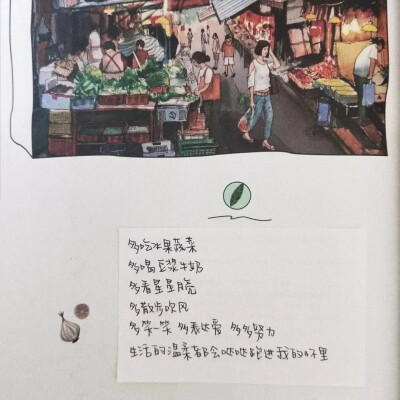 多吃水果蔬菜
多喝豆浆牛奶
多看星星月亮
多散步吹风
多笑一笑 多表达爱 多多努力
生活的温柔都会哒哒跑进我的怀里